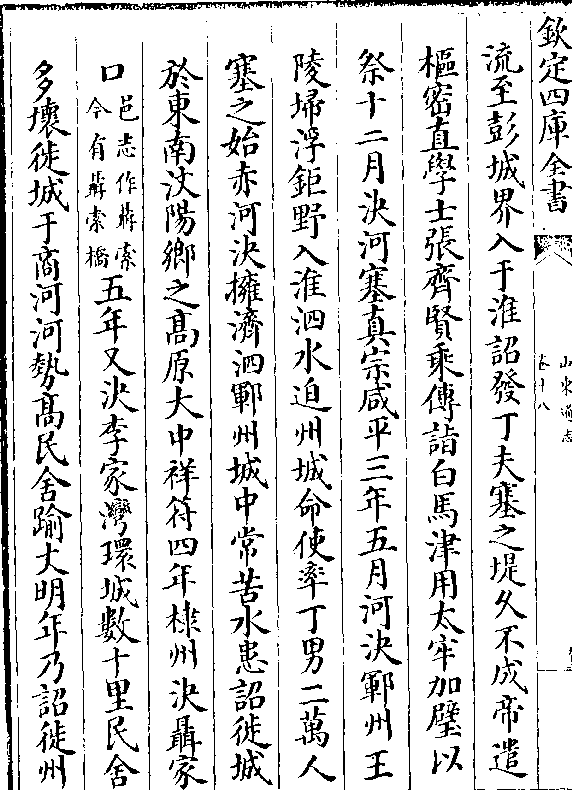 欽定四庫全書
山東通志
卷十八
流至彭城界入于淮詔發丁夫塞之堤久不成帝遣
樞密直學士張齊賢乘傳詣白馬津用太牢加璧以
祭十二月決河塞真宗咸平三年五月河決鄆州王
陵埽浮鉅野入淮泗水迫州城命使率丁男二萬人
塞之始赤河決擁濟泗鄆州城中常苦水患詔徙城
於東南汶陽鄉之髙原大中祥符四年棣州決聶家
口邑志作聶索今有聶索橋五年又決李家灣環城數十里民舍
多壞徙城于商河河勢髙民舍踰丈明年乃詔徙州